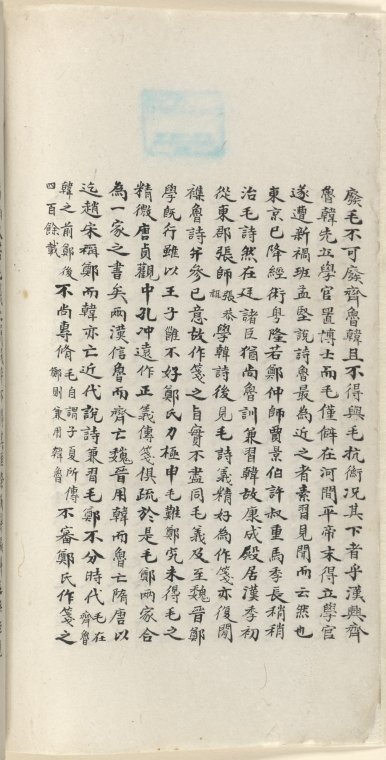 廢毛不可廢齊魯韓且不得與毛抗衡況其下者乎漢興齊
魯韓先立學官置博士而毛僅僻在河間平帝末得立學官
遂遭新禍班孟堅說詩魯最為近之者素習見聞而云然也
東京已降經術粤隆若鄭仲師賈景伯許叔重馬季長稍稍
治毛詩然在廷諸臣猶尚魯訓兼習韓故康成殿居漢季初
從東郡張師張恭祖學韓詩後見毛詩義精好為作箋亦復閒
襍魯詩并參已意故作箋之旨實不盡同毛義及至魏晉鄭
學旣行雖以王子雝不好鄭氏力極申毛難鄭究未得毛之
精微唐貞觀中孔沖遠作正義傳箋俱疏於是毛鄭兩家合
為一家之書矣兩漢信魯而齊亡魏晉用韓而魯亡隋唐以
迄趙宋稱鄭而韓亦亡近代說詩兼習毛鄭不分時代毛在齊魯
韓之前鄭後四百餘載不尚專脩毛自謂子夏所傳鄭則兼用韓魯不審鄭氏作箋之